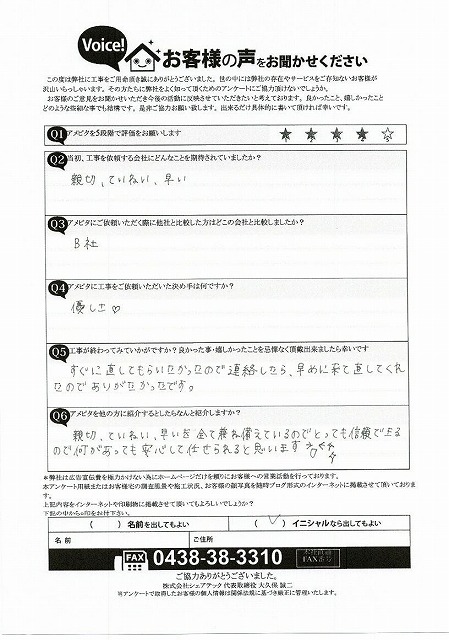 Voice! お客様の声をお聞かせください
この度は弊社に工事をご用命頂き誠にありがとうございました。世の中には弊社の存在やサービスをご存知ないお客様が
沢山いらっしゃいます。その方たちに弊社をよく知って頂くためのアンケートにご協力頂けないでしょうか。
お客様のご意見をお聞かせいただき今後の活動に反映させていただきたいと考えております。良かったこと、嬉しかったこと
どのような些細な事でも結構です。是非ご協力お願い致します。出来るだけ具体的に書いて頂ければ幸いです。
Q1 アメピタを5段階で評価をお願いします ★ ★ ★ ★ ☆
Q2 当初、工事を依頼する会社にどんなことを期待されていましたか?
親切、ていねい、早い
Q3 アメピタにご依頼いただく際に他社と比較した方はどこの会社と比較しましたか?
B社
Q4 アメピタに工事をご依頼いただいた決め手は何ですか?
優しさ♡
Q5 工事が終わってみていかがですか?良かった事・嬉しかったことを忌憚なく頂戴出来ましたら幸いです
すぐに直してもらいたかったので連絡したら、早めに来て直してくれ
たのでありがたかったです。
Q6 アメピタを他の方に紹介するとしたらなんと紹介しますか?
親切、ていねい、早いを全て兼ね備えているのでとっても信頼できる
ので何があっても安心して任せられると思います
*弊社は広告宣伝費を極力かけない為にホームページだけを頼りにお客様への営業活動を行っております。
本アンケート用紙またはお客様宅の調査風景や施工状況、お客様の顔写真を随時ブログ形式のインターネットに掲載させて頂いておりま
す。
上記内容をインターネットや印刷物に掲載させて頂いてもよろしいでしょうか?
下記の中から○印をお付下さい。
( ) 名前を出してもよい ( ✓ ) イニシャルなら出してもよい
名前 ご住所
FAX 0438-38-3310
ご協力ありがとうございました。
株式会社シェアテック 代表取締役 大久保 誠二
※アンケートで取得したお客様の個人情報は関係法規に基づき厳正に管理いたします。